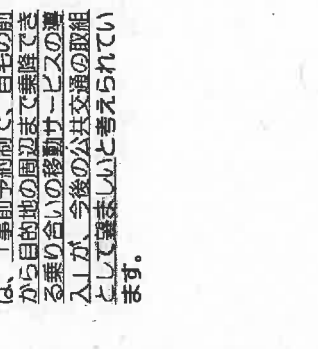 は、「事前予約制で、自宅の前
から目的地の周辺まで乗降でき
る乗り合いの移動サービスの導
入」が、今後の公共交通の取組
として望ましいと考えられてい
ます。